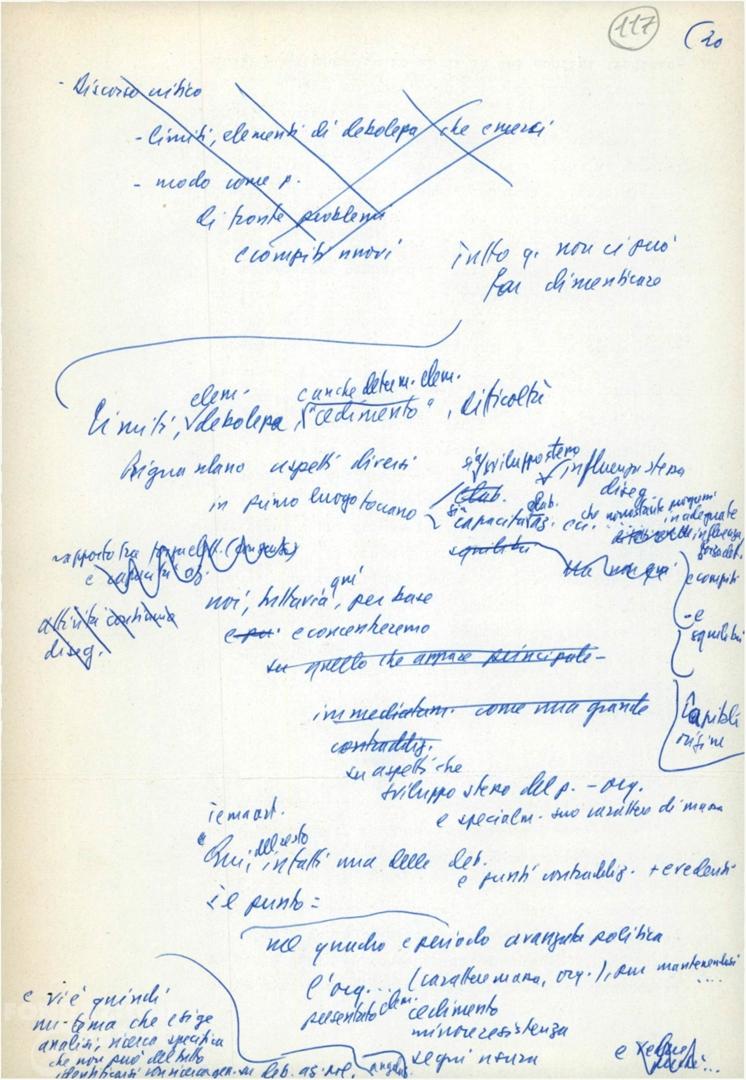 117
(20
- Discorso critico
- limiti, elementi di debolezza che emersi
- modo come p.
di fronte problemi
e compiti nuovi
tutto q. non ci può
far dimenticare
elem. anche determ. elem.
Limiti, debolezza, "cedimento", difficoltà
Riguardano aspetti diversi
sia sviluppo steso influenza stesa
in primo luogo toccano
elab. diseg.
sia capacità az. ecc. che nonostante
inadeguate
equilibri influenza
rapporto tra
e capacità az.
e compiti
attività continua
diseg.
noi, tuttavia, qui per base
e poi e concentreremo
- e
equilibri
su quello che appare principale -
immediatam. come una grande
contraddiz.
capirli
origine
su aspetti che
sviluppo steso del p. - org.
e specialm. suo carattere di massa
Qui, del resto infatti una delle deb.
e punti contraddiz. + evidenti
il punto =
nel quadro e periodo avanzata politica
l'org... (carattere massa, org.), pur mantenendosi
...
presentato elem. cedimento
minore resistenza
segni usura
e
e vi è quindi
un tema che esige
analisi, ricerca specifica
che non può del tutto
identificarsi con ricerca gen. su deb. az. pol.